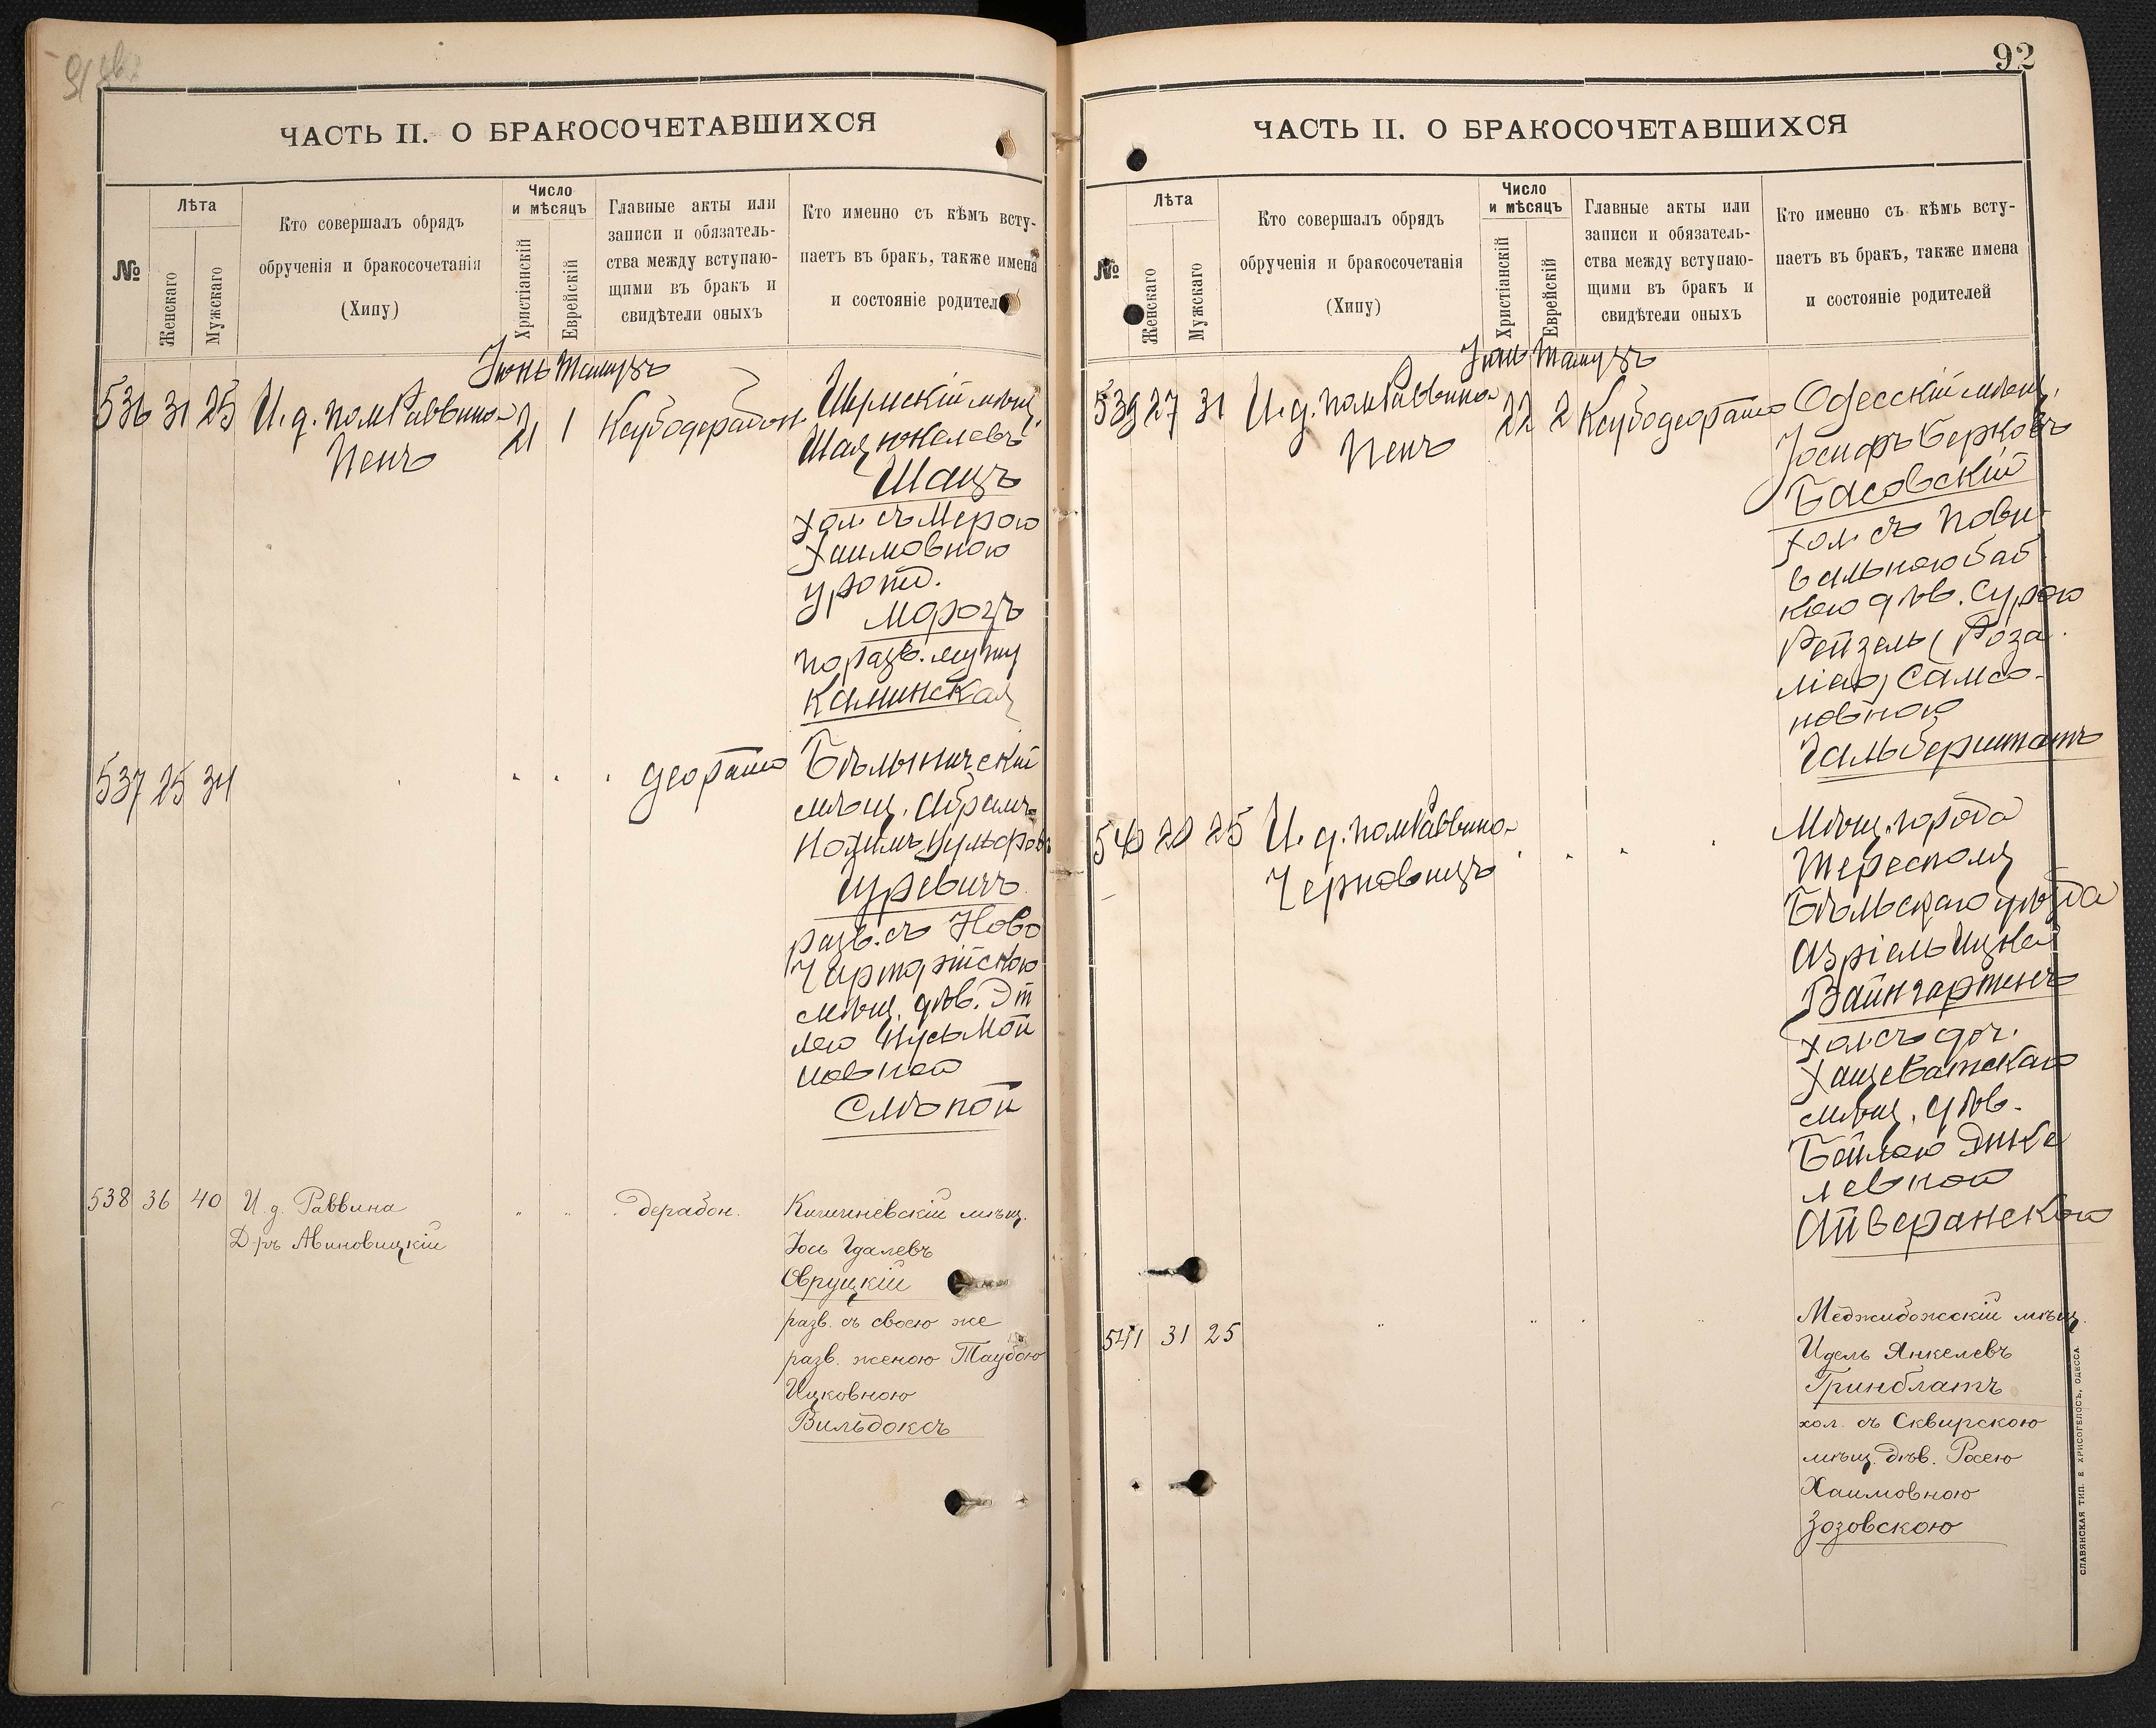 92
ЧАСТЬ II. О БРАКОСОЧЕТАВШИХСЯ
№
Лѣта
Женскаго
Мужскаго
Кто совершалъ обрядъ
обрученія и бракосочетанія
(Хипу)
Число
и мѣсяцъ
Христіанскій
Еврейскій
Главные акты или
записи и обязатель-
ства между вступаю-
щими въ бракъ и
свидѣтели оныхъ
Кто именно съ кѣмъ всту-
паетъ въ бракъ, также имена
и состояніе родител
Іюнь Тамузъ
536 31 25 И. д. пом Раввина 21 1
Пенъ
мѣщ.
Шая Юкелевъ
Шацъ
хол. съ Мерою
Хаимовною
урожд.
Морозъ
по разв. мужу
Калинская
537 25 34
Бѣлыничскій
мѣщ. Абрамъ
Вульфовъ
Гуревичъ
разв. съ Ново
Чарторійскою
мѣщ. дѣв. Эт
лею
новной
Слѣпой
538 36 40 И. д. Раввина " " дерабон.
Д-ръ Авиновицкій
Кишиневскій мѣщ.
Іось Гдалевъ
Овруцкій
разв. съ своею же
разв. женою Таубою
Ицковною
Вильдоксъ
ЧАСТЬ II. О БРАКОСОЧЕТАВШИХСЯ
№
Лѣта
Женскаго
Мужскаго
Кто совершалъ обрядъ
обрученія и бракосочетанія
(Хипу)
Число
и мѣсяцъ
Христіанскій
Еврейскій
Главные акты или
записи и обязатель-
ства между вступаю-
щими въ бракъ и
свидѣтели оныхъ
Кто именно съ кѣмъ всту-
паетъ въ бракъ, также имена
и состояніе родителей
Іюнь Тамузъ
539 27 31 И. д. пом Раввина 22 2
Пенъ
Одесскій мѣщ.
Іосифъ Берковъ
Басовскій
хол. съ Пови-
вальною баб
кою дѣв. Сурою
Рейзель (Роза-
ліею) Самсо-
новною
Гальберштатъ
540 20 25 И. д. пом Раввина
Черновицъ
Мѣщ. города
Тересполя
Бѣльскаго уѣзда
Азріель Ицков
Вайнгартенъ
хол. съ доч.
Хащеватскаго
мѣщ. дѣв.
Бейлою Янке
левной
541 31 25
Меджибожскій мѣщ.
Идель Янкелевъ
Гринблатъ
хол. съ Сквирскою
мѣщ. дѣв. Расею
Хаимовною
Зозовскою
СЛАВЯНСКАЯ ТИП. Е ХРИСОГЕЛОСЪ, ОДЕССА.